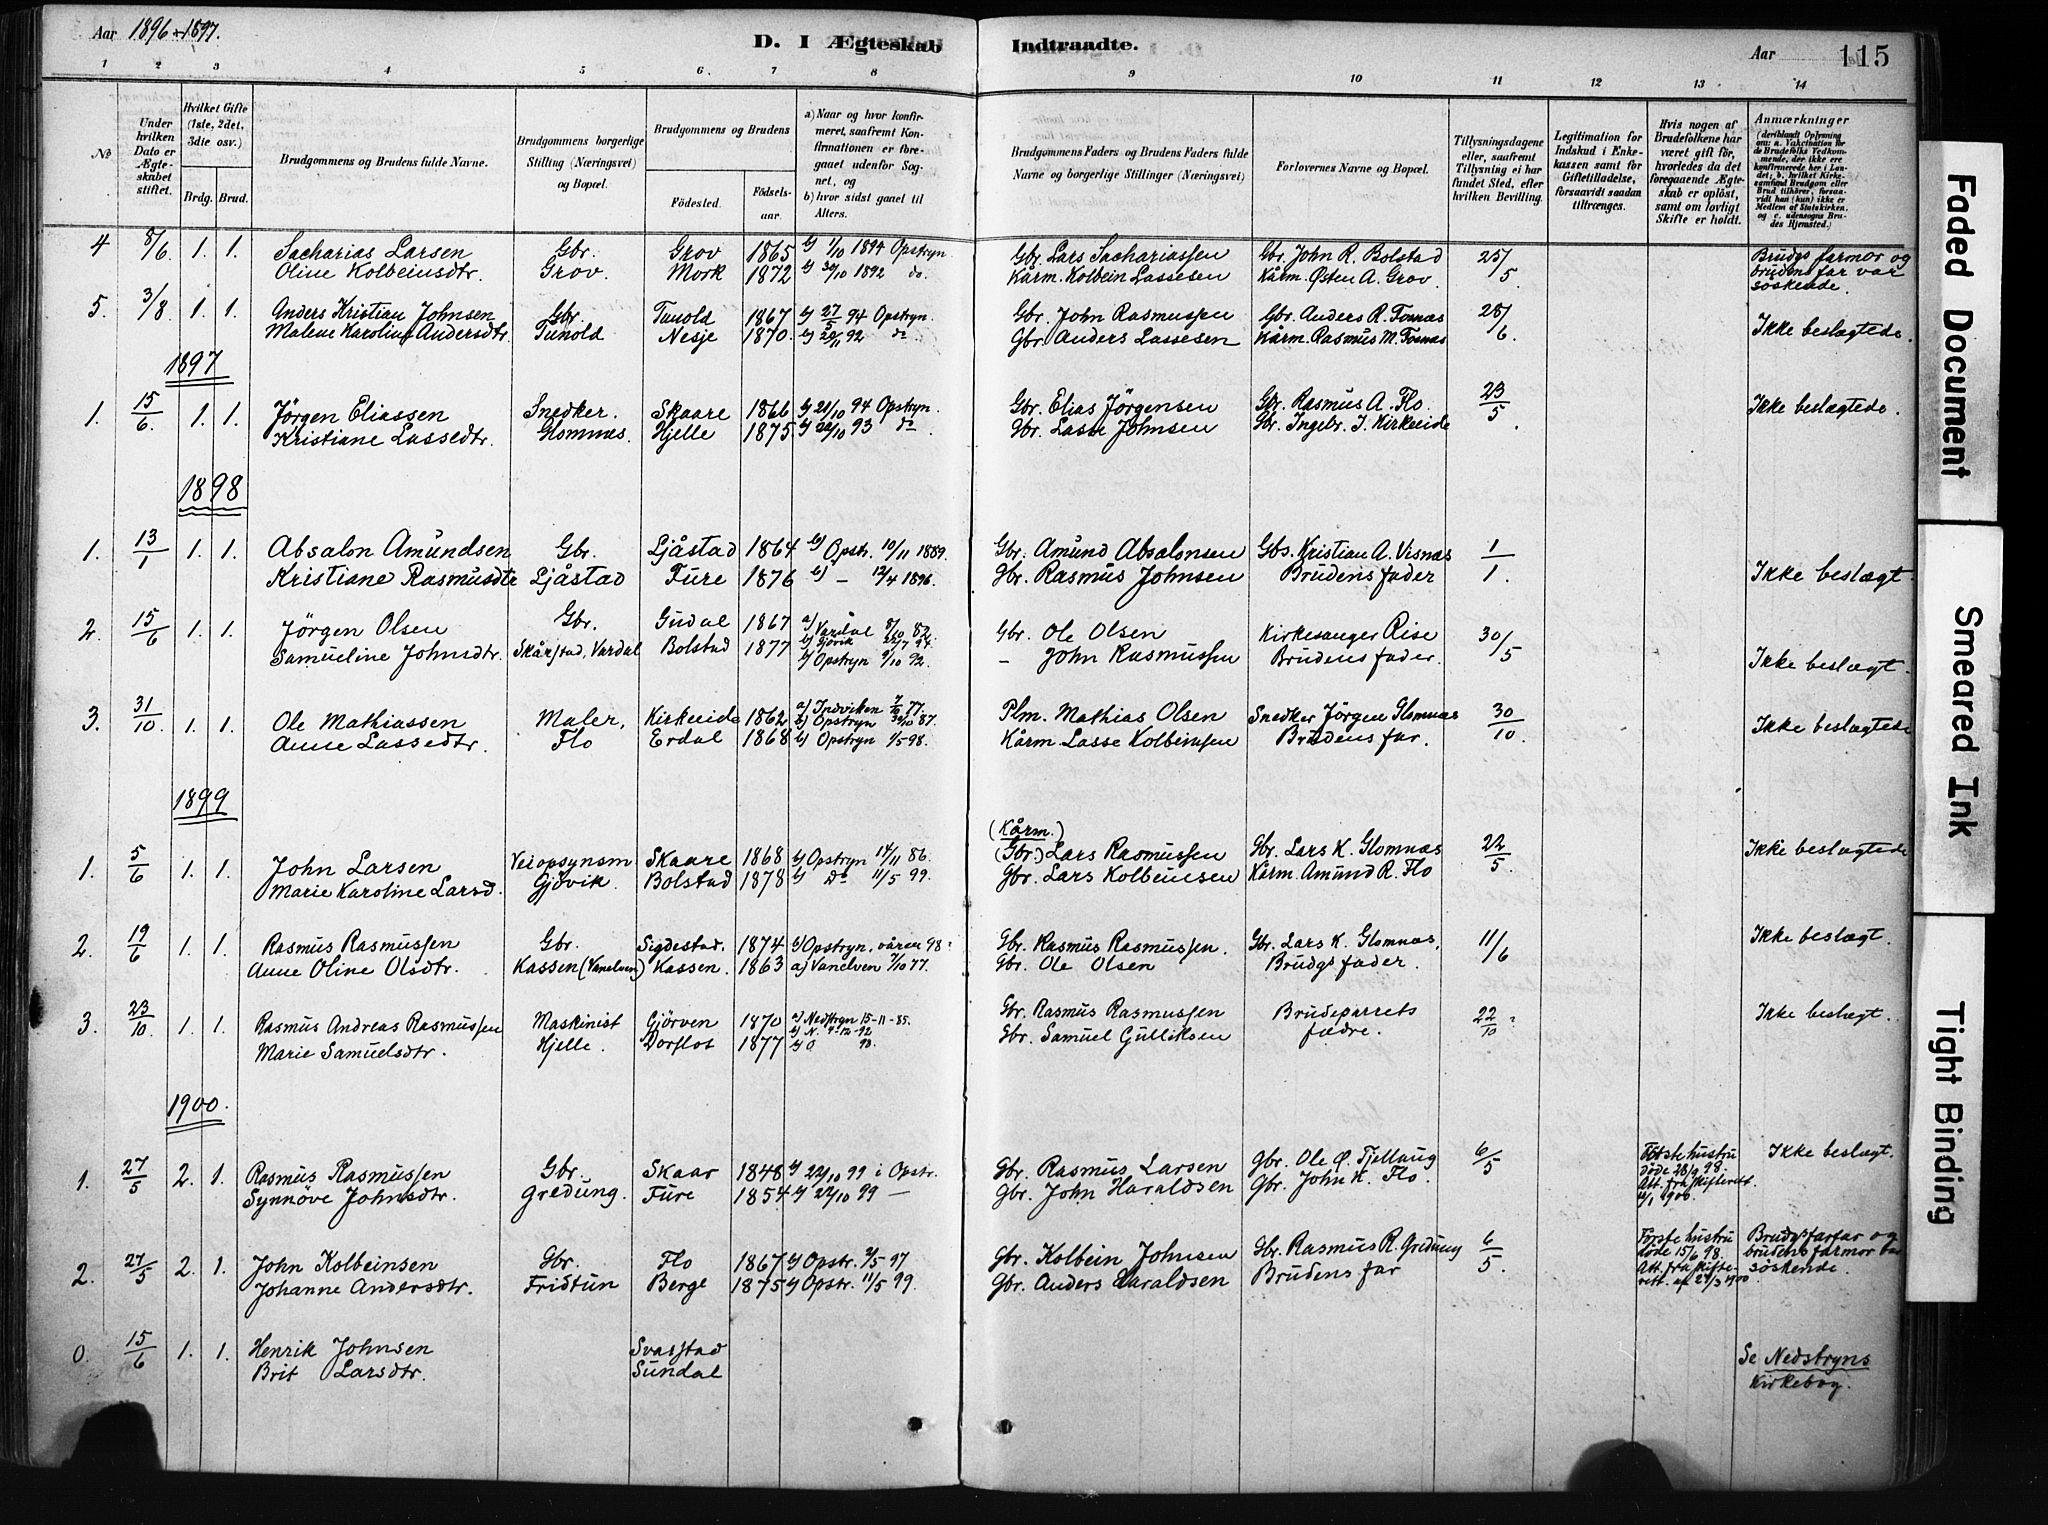 Aar 1896 & 1897.
D. I Ægteskab Indtraadte.
Aar 115
1 2 3 4 5 6. 7 8 9 10 11 12 13 14
No
Under hvilken Dato er Ægteskabet stiftet.
Hvilket Gifte (1ste, 2det, 3die osv.)
Brdg. Brud.
Brudgommens og Brudens fulde Navne.
Brudgommens borgerlige Stilling (Næringsvei) og Bopæl.
Brudgommens og Brudens
Födested. Födselsaar.
a) Naar og hvor konfirmeret, saafremt Konfirmationen er foregaaet udenfor Sognet, og
b) hvor sidst gaaet til Alters.
Brudgommens Faders og Brudens Faders fulde Navne og borgerlige Stillinger (Næringsvei)
Forlovernes Navne og Bopæl.
Tillysningsdagene eller, saafremt Tillysning ei har fundet Sted, efter hvilken Bevilling.
Legitimation for Indskud i Enkekassen samt for Giftetilladelse, forsaavidt saadan tiltrænges.
Hvis nogen af Brudefolkene har været gift før, hvorledes da det foregaaende Ægteskab er oplöst, samt om lovligt Skifte er holdt.
Anmærkninger
(deriblandt Oplysning om: a. Vaccination for de Brudefolks Vedkommende, der ikke ere konfirmerede her i Landet; b. hvilket Kirkesamfund Brudgom eller Brud tilhörer, forsaavidt han (hun) ikke er Medlem af Statskirken, og c. udensogns Brudes Hjemsted.)
4 8/6 1. 1. Sacharias Larsen Gbr. Grov 1865 b) 1/10 1894 Opstryn. Gbr. Lars Sachariassen Gbr. John R. Bolstad 25/5 Brudgs farmor og
Oline Kolbeinsdtr. Grov. Mork 1872 b) 30/10 1892 do. Kårm. Kolbein Lassesen Kårm. Østen A. Grov. brudens far var
søskende.
5. 3/8 1. 1. Anders Kristian Johnsen Gbr. Tunold 1867 b) 27/5 94 Opstryn. Gbr. John Rasmussen Gbr. Anders R. Fosnæs 28/6
Malene Karoline Andersdtr. Tunold Nesje 1870. b) 20/11 92 do Gbr. Anders Lassesen Kårm. Rasmus M. Fosnæs Ikke beslægtede.
1897
1. 15/6. 1. 1. Jörgen Eliassen Snedker. Skaare 1866 b) 21/10 94 Opstryn. Gbr. Elias Jörgensen Gbr. Rasmus A. Flo. 23/5 Ikke beslægtede.
Kristiane Lassedtr. Glomnæs. Hjelle 1875 b) 22/10 93 do. Gbr. Lasse Johnsen Gbr. Ingebr. J. Kirkeeide
1898
1. 13/1 1. 1. Absalon Amundsen Gbr. Ljåstad 1864 b) Opstr. 10/11 1889. Gbr. Amund Absalonsen Gbs. Kristian A. Visnæs 1/1.
Kristiane Rasmusdtr Ljåstad Fure 1876 b) – 12/4 1896. Gbr. Rasmus Johnsen Brudens fader Ikke beslægt.
2. 15/6 1. 1. Jörgen Olsen Gbr. Gudal 1867 a) Vardal 8/10 82. b) Gjövik 22/7 94. Gbr. Ole Olsen Kirkesanger Rise 30/5
Samueline Johnsdtr. Skårstad, Vardal Bolstad 1877 b) Opstryn 9/10 92. – John Rasmussen Brudens fader. Ikke beslægt.
3. 31/10. 1. 1. Ole Mathiassen Maler, Kirkeeide 1862 a) Indviken 7/10 77. b) Opstryn 30/10 87. Plm. Mathias Olsen Snedker Jörgen Glomnæs 30/10. Ikke beslægtede
Anne Lassedtr. Flo Erdal 1868 b) Opstryn 1/5 98. Kårm Lasse Kolbeinsen Brudens far.
1899
(Kårm.)
1. 5/6 1. 1. John Larsen Veiopsynsm Skaare 1868 b) Opstryn 14/11 86. (Gbr.) Lars Rasmussen Gbr. Lars K. Glomnæs 22/5. Ikke beslægtede
Marie Karoline Larsd. Gjövik. Bolstad 1878 b) Do 11/5 99. Gbr. Lars Kolbeinsen Kårm. Amund R. Flo
2. 19/6 1. 1. Rasmus Rasmussen Gbr. Sigdestad. 1874 b) Opstryn, våren 98. Gbr. Rasmus Rasmussen. Gbr. Lars K. Glomnæs, 11/6 Ikke beslægt.
Anne Oline Olsdtr. Kassen (Vanelven) Kassen. 1863 a) Vanelven 7/10 77. Gbr. Ole Olsen Brudgs fader.
3. 23/10. 1. 1. Rasmus Andreas Rasmussen Maskinist Gjörven 1870 a) Nedstryn 15-11-85. b) N. 4-12-92 Gbr. Rasmus Rasmussen Brudeparrets 22/10 Ikke beslægt.
Marie Samuelsdtr. Hjelle. Dorflot 1877 b) O 98. Gbr. Samuel Gulliksen fædre.
1900.
1. 27/5 2. 1. Rasmus Rasmussen Gbr. Skaar 1848 b) 22/10 99 i Opstr. Gbr. Rasmus Larsen Gbr. Ole Ø. Tjellaug 6/5 Første hustru døde 28/9 98. Att. fra skifterett 11/1 1900. Ikke beslægt.
Synnöve Johnsdtr. Gredung. Fure 1854 b) 22/10 99 – Gbr. John Haraldsen Gbr. John K. Flo.
2. 27/5 2. 1. John Kolbeinsen Gbr. Flo 1867 b) Opstr. 2/5 97 Gbr. Kolbein Johnsen Gbr. Rasmus R. Gredung 6/5. Første hustru døde 15/6 98. Att. fra skifterett. af 27/3 1900 Brudgs farfar og
Johanne Andersdtr. Fridtun Berge 1875 b) Opstr. 11/5 99. Gbr. Anders Haraldsen Brudens far brudens farmor var
søskende.
0. 15/6 1. 1. Henrik Johnsen Svarstad
Brit Larsdtr. Sundal Se Nedstryns
Kirkebog.
Faded Document
Smeared Ink
Tight Binding